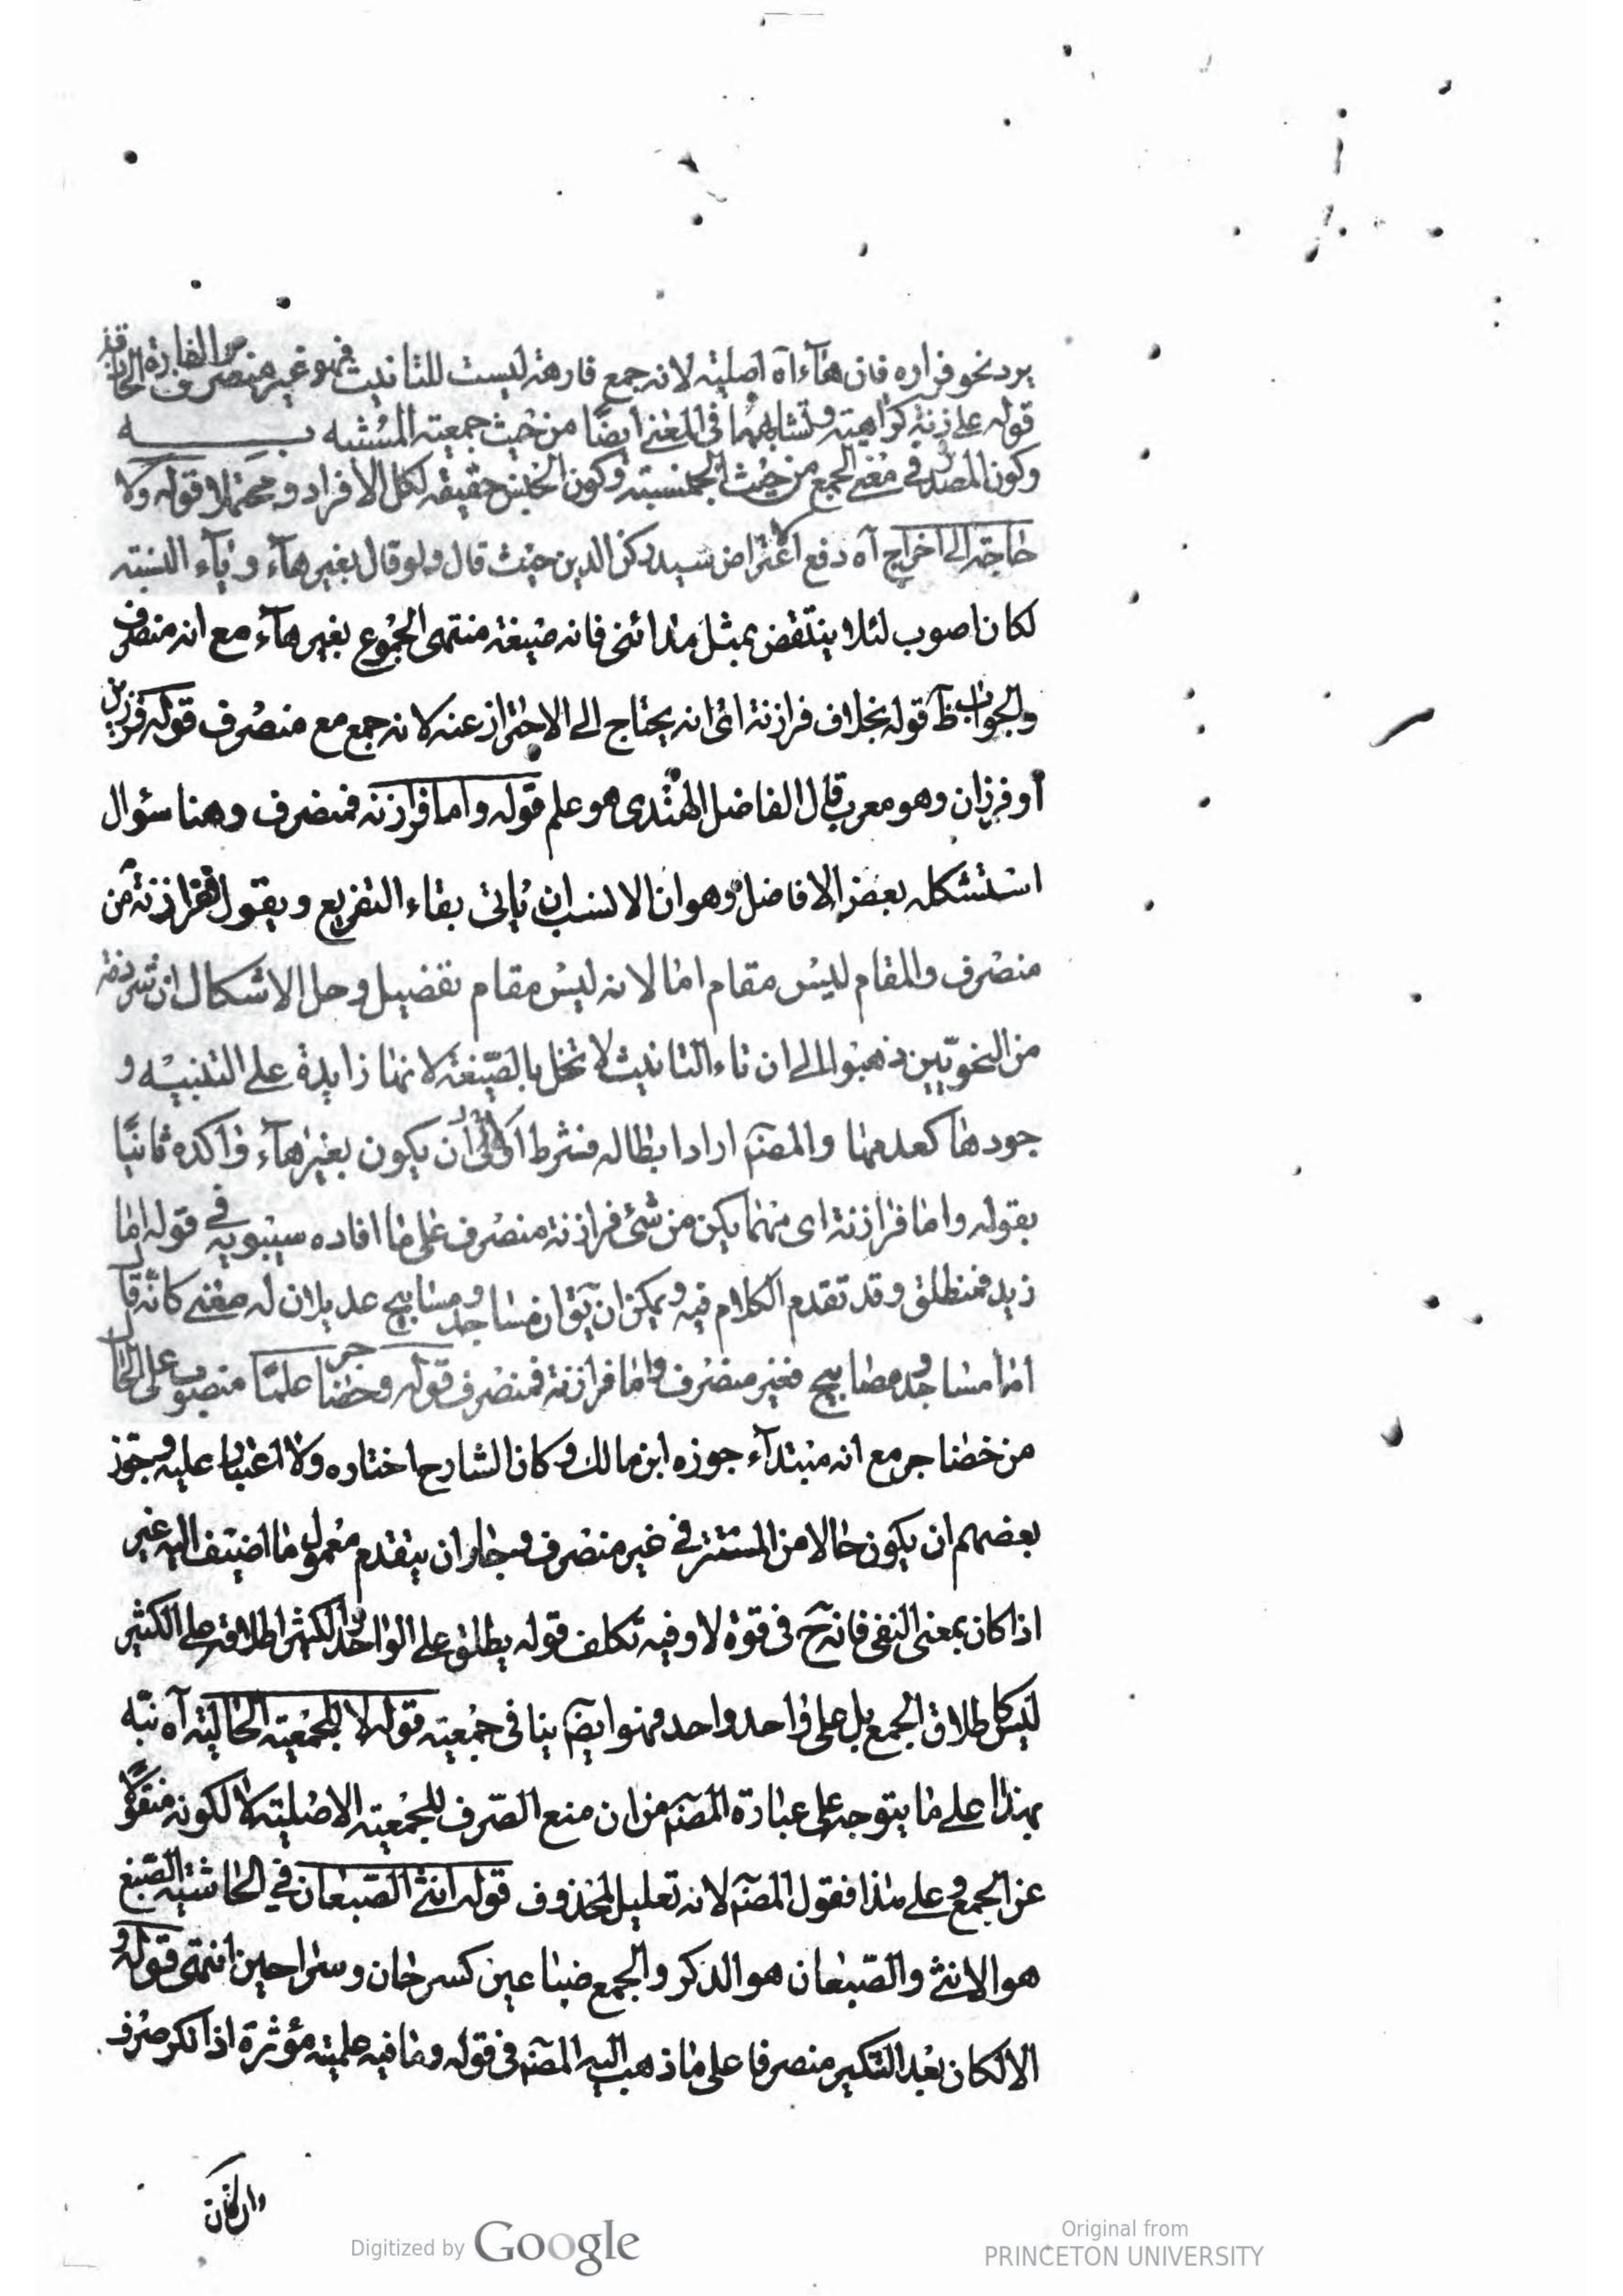 يرد نحو فراره فان هاءه اصلية لانه جمع فارهة ليست للتانيث فهو غير منصرف
قوله على زنة كراهية وتشابههما في المعنى ايضا من حيث جمعية المشبه به
وكون المصدر في معنى الجمع من حيث الجنسية وكون الجنس حقيقة لكل الافراد ومحتملا قوله ولا
حاجة الى اخراج آه دفع لاعتراض سيد ركن الدين حيث قال ولو قال بغير هآء ويآء النسبة
لكان اصوب لئلا ينتقض بمثل مدائني فانه صيغة منتهى الجموع بغير هآء مع انه منصرف
والجواب ظ قوله بخلاف فرازنة اى انه يحتاج الى الاحتراز عنه لانه جمع مع منصرف قوله فرزين
او فرزان وهو معرب قال الفاضل الهندى هو علم قوله واما فرازنة فمنصرف وهنا سؤال
استشكله بعض الافاضل وهو ان الانسب ان ياتى بفاء التفريع ويقول ففرازنة
منصرف والمقام ليس مقام اما لانه ليس مقام تفصيل وحل الاشكال ان شرذمة
من النحويين ذهبوا الى ان تاء التانيث لا تخل بالصيغة لانها زايدة على التنبيه و
جودها كعدمها والمصنم اراد ابطاله فشرط اولا ان يكون بغير هآء واكده ثانيا
بقوله واما فرازنة اى مهما يكن من شئ فرازنة منصرف على ما افاده سيبويه فى قوله اما
زيد فمنطلق وقد تقدم الكلام فيه ويمكن ان يق ان مساجد ومصابيح عديلان له معنى كانه قال
اما مساجد ومصابيح فغير منصرف واما فرازنة فمنصرف قوله وحضاجر علما منصوب على الحال
من حضاجر مع انه مبتدآء جوزه ابن مالك وكان الشارح اختاره ولا اغبار عليه وجوز
بعضهم ان يكون حالا من المستتر في غير منصرف وجاز ان يتقدم معمول ما اضيف اليه غير
اذا كان بمعنى النفى فانه ح فى قوة لا وفيه تكلف قوله يطلق على الواحد والكثير اطلاقه على الكثير
ليس كاطلاق الجمع بل على واحد واحد فهو ايضم ينافى جمعيته قوله لا للجمعية الحالية آه نبه
بهذا على ما يتوجه على عبارة المصنم من ان منع الصرف للجمعية الاصلية لا لكونه منقولا
عن الجمع وعلى هذا فقول المصنم لانه تعليل لمحذوف قوله انثى الضبعان في الحاشية الضبع
هو الانثى والضبعان هو الذكر والجمع ضباعين كسرحان وسراحين انتهى قوله و
الا لكان بعد التنكير منصرفا على ما ذهب اليه المصنم فى قوله وما فيه علمية مؤثرة اذا نكر صرف
وان كان